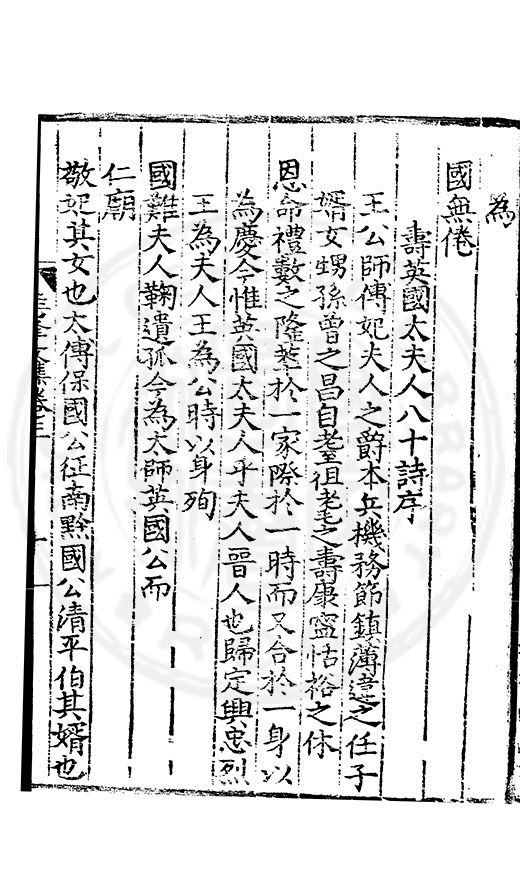 為
國無倦
壽英國太夫人八十詩序
王公師傅妃夫人之爵本兵機務節鎮薄逺之任子
婿女甥孫曾之昌自耋徂耄之壽康寧怙裕之休
恩命禮數之隆萃於一家際於一時而又合於一身以
為慶今惟英國太夫人乎夫人晉人也歸定興忠烈
王為夫人王為公時以身殉
國難夫人鞠遺孤今為太師英國公而
仁廟
敬妃其女也太傅保國公征南黔國公清平伯其婿也
文集卷三